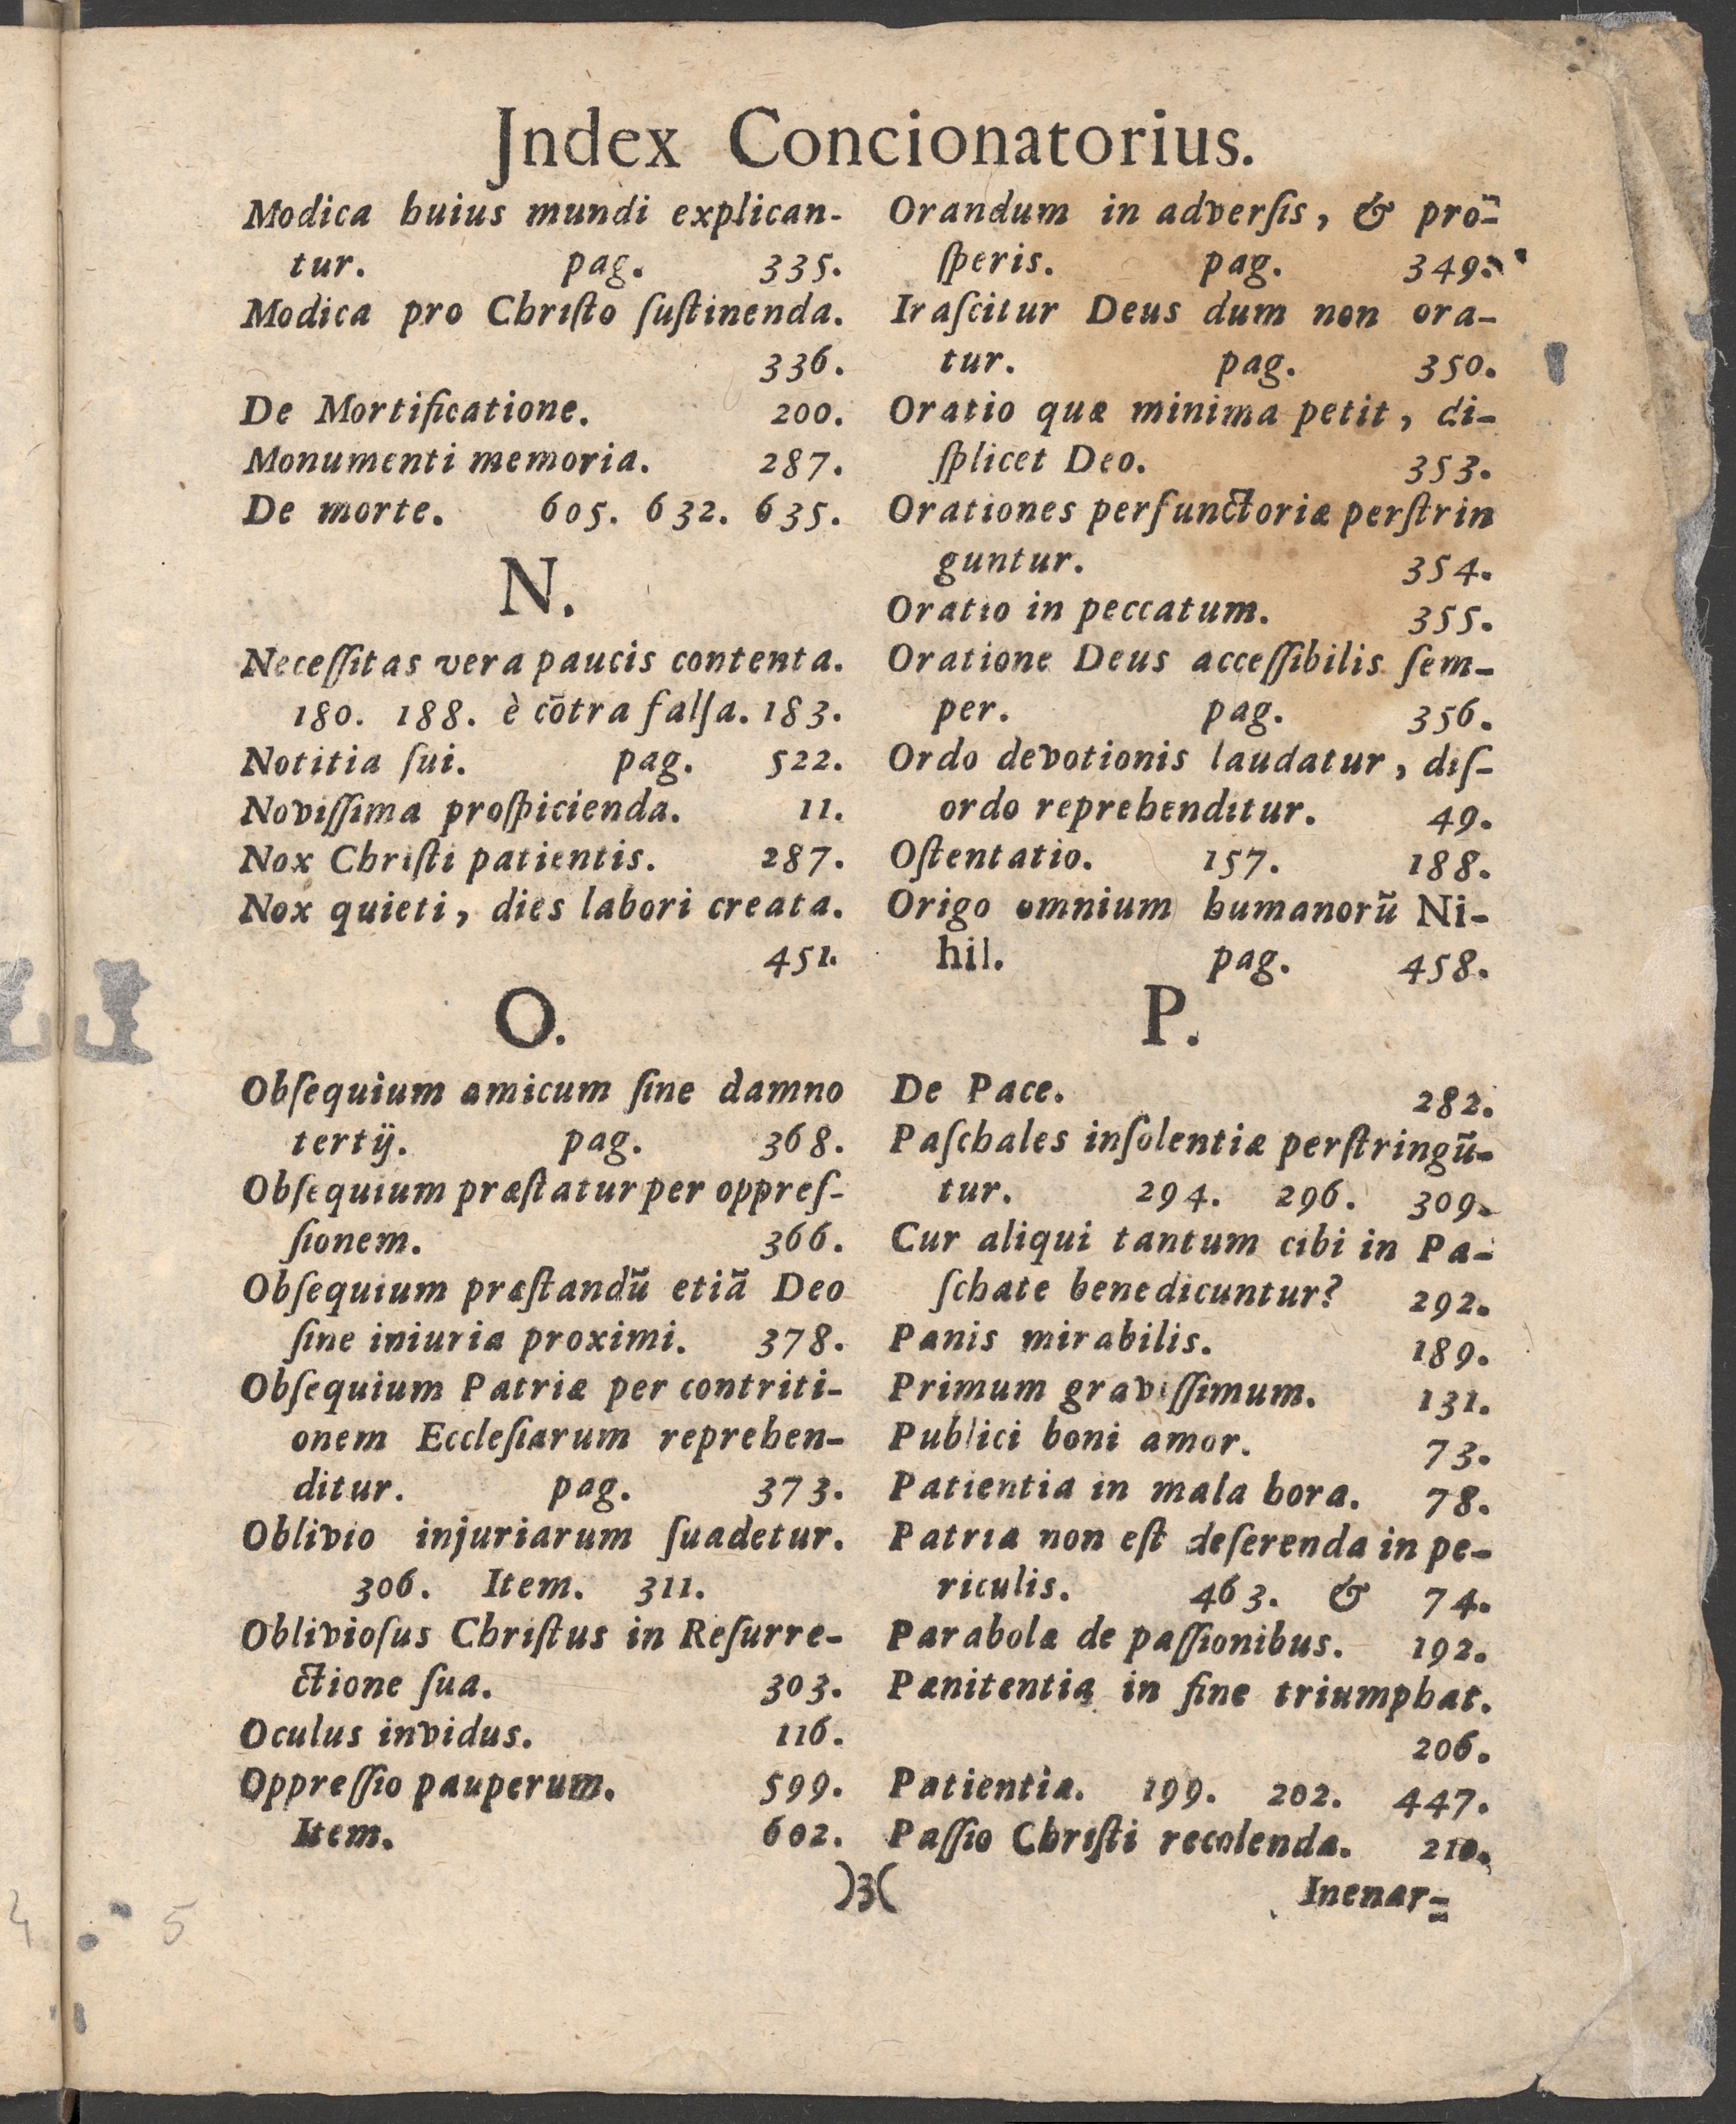 Jndex Concionatorius.
Modica huius mundi explican-
tur. pag. 335.
Modica pro Chriſto ſuſtinenda.
336.
De Mortificatione. 200.
Monumenti memoria. 287.
De morte. 605. 632. 635.
N.
Neceſſitas vera paucis contenta.
180. 188. è cõtra falſa. 183.
Notitia ſui. pag. 522.
Noviſſima proſpicienda. 11.
Nox Chriſti patientis. 287.
Nox quieti, dies labori creata.
451.
O.
Obſequium amicum ſine damno
tertij. pag. 368.
Obſequium præſtatur per oppreſ-
ſionem. 366.
Obſequium præſtandũ etiã Deo
ſine iniuria proximi. 378.
Obſequium Patriæ per contriti-
onem Eccleſiarum reprehen-
ditur. pag. 373.
Oblivio injuriarum ſuadetur.
306. Item. 311.
Oblivioſus Chriſtus in Reſurre-
ctione ſua. 303.
Oculus invidus. 116.
Oppreſſio pauperum. 599.
Item. 602.
Orandum in adverſis, & pro-
ſperis. pag. 349.
Iraſcitur Deus dum non ora-
tur. pag. 350.
Oratio quæ minima petit, di-
ſplicet Deo. 353.
Orationes perfunctoriæ perſtrin
guntur. 354.
Oratio in peccatum. 355.
Oratione Deus acceſſibilis ſem-
per. pag. 356.
Ordo devotionis laudatur, diſ-
ordo reprehenditur. 49.
Oſtentatio. 157. 188.
Origo omnium humanorũ Ni-
hil. pag. 458.
P.
De Pace. 282.
Paſchales inſolentiæ perſtringũ-
tur. 294. 296. 309.
Cur aliqui tantum cibi in Pa-
ſchate benedicuntur? 292.
Panis mirabilis. 189.
Primum graviſſimum. 131.
Publici boni amor. 73.
Patientia in mala hora. 78.
Patria non eſt deſerenda in pe-
riculis. 463. & 74.
Parabola de paſſionibus. 192.
Pænitentia in fine triumphat.
206.
Patientia. 199. 202. 447.
Paſſio Chriſti recolenda. 210.
)3(
Inenar-
4
5